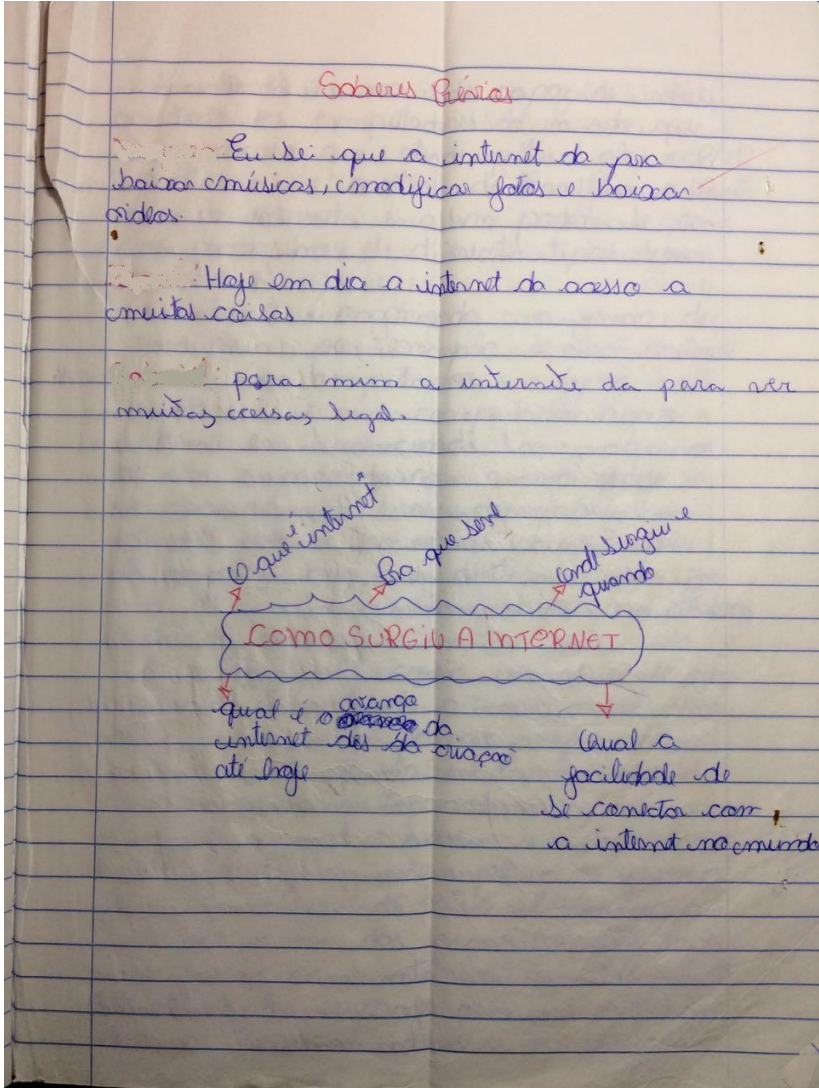 Saberes Prévios
Eu sei que a internet da pra
baixar músicas, modificar fotos e baixar
videos.
Hoje em dia a internet da acesso a
muitas coisas
para mim a internete da para ver
muitas coissas legal.
O que é internet
Pra que serve
onde surgiu e
quando
COMO SURGIU A INTERNET
avanço
qual é o da
internet des da criação
até hoje
Qual a
facilidade de
se conectar com
a internet no mundo